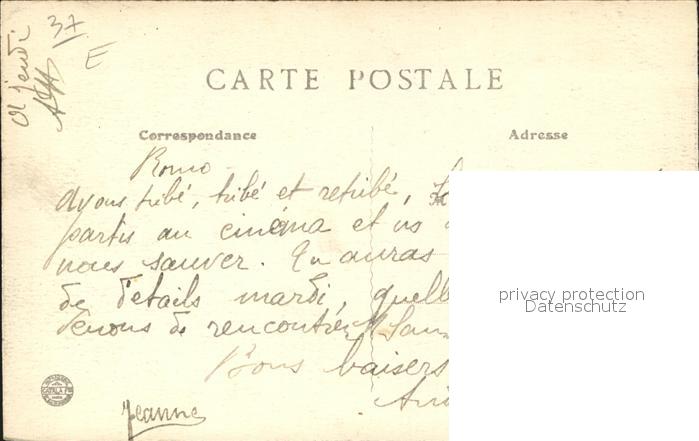 37
E
A jeudi
CARTE POSTALE
Correspondance
Adresse
Ayous tubé, tubé et retubé,
partis au cinéma et ns
nous sauver. Tu auras
de détails mardi, quelle
venons de rencontrer
Bons baisers
Jeanne
privacy protection
Datenschutz
CATALA